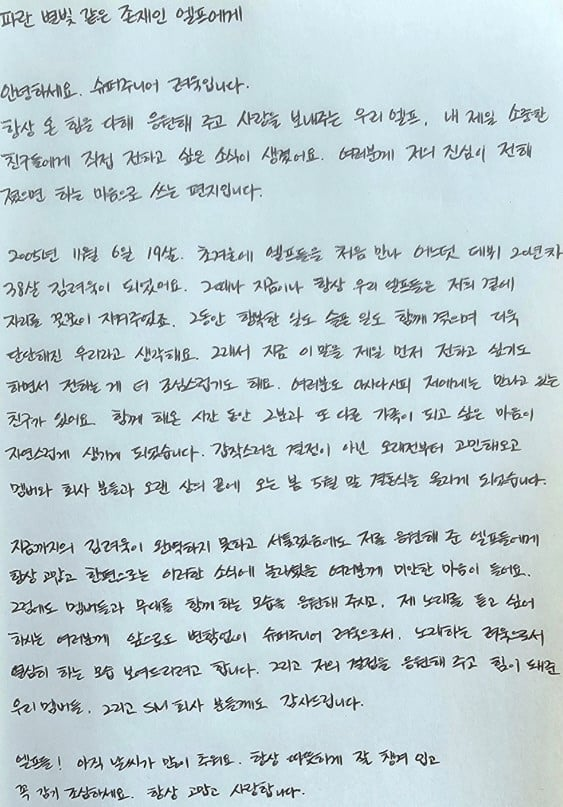 파란 별빛 같은 존재인 엘프에게
안녕하세요. 슈퍼주니어 려욱입니다.
항상 온 힘을 다해 응원해 주고 사랑을 보내주는 우리 엘프, 내 제일 소중한
친구들에게 직접 전하고 싶은 소식이 생겼어요. 여러분께 저의 진심이 전해
졌으면 하는 마음으로 쓰는 편지입니다.
2005년 11월 6일 19살. 초겨울에 엘프들을 처음 만나 어느덧 데뷔 20년차
38살 김려욱이 되었어요. 그때나 지금이나 항상 우리 엘프들은 저희 곁에
자리를 꼿꼿이 지켜주었죠. 그동안 행복한 일도 슬픈 일도 함께 겪으며 더욱
단단해진 우리라고 생각해요. 그래서 지금 이 말을 제일 먼저 전하고 싶기도
하면서 전하는 게 더 조심스럽기도 해요. 여러분도 아시다시피 저에게는 만나고 있는
친구가 있어요. 함께 해온 시간 동안 그분과 또 다른 가족이 되고 싶은 마음이
자연스럽게 생기게 되었습니다. 갑작스러운 결정이 아닌 오래전부터 고민해오고
멤버와 회사 분들과 오랜 상의 끝에 오는 봄 5월 말 결혼식을 올리게 되었습니다.
지금까지의 김려욱이 완벽하지 못하고 서툴렀음에도 저를 응원해 준 엘프들에게
항상 고맙고 한편으로는 이러한 소식에 놀라셨을 여러분께 미안한 마음이 들어요.
그럼에도 멤버들과 무대를 함께 하는 모습을 응원해 주시고, 제 노래를 듣고 싶어
하시는 여러분께 앞으로도 변함없이 슈퍼주니어 려욱으로서, 노래하는 려욱으로서
열심히 하는 모습 보여드리려고 합니다. 그리고 저의 결정을 응원해 주고 힘이 돼준
우리 멤버들, 그리고 SM 회사 분들께도 감사드립니다.
엘프들! 아직 날씨가 많이 추워요. 항상 따뜻하게 잘 챙겨 입고
꼭 감기 조심하세요. 항상 고맙고 사랑합니다.